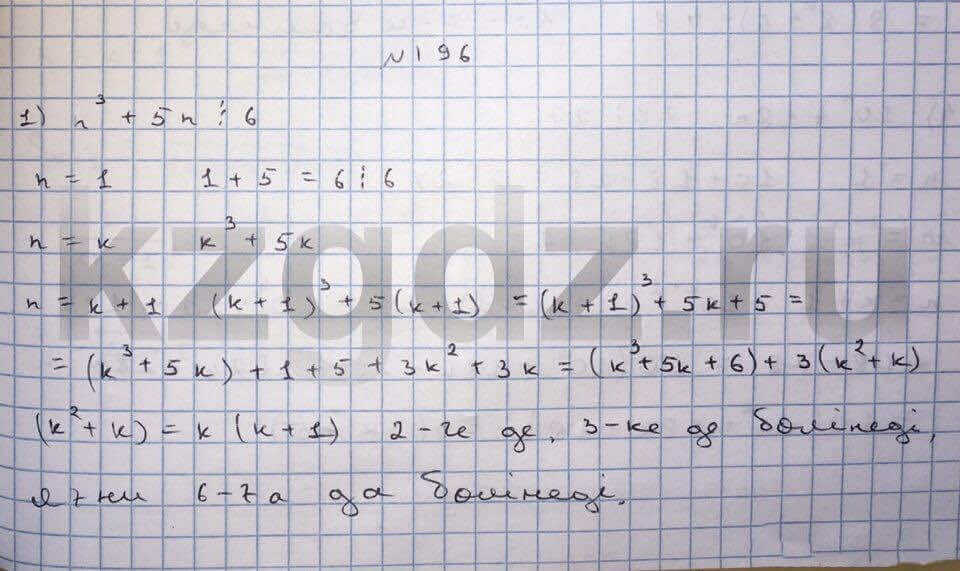 №196
1) n³ + 5n ⋮ 6
n = 1 1 + 5 = 6 ⋮ 6
n = k k³ + 5k
n = k + 1 (k + 1)³ + 5(k + 1) = (k + 1)³ + 5k + 5 =
= (k³ + 5k) + 1 + 5 + 3k² + 3k = (k³ + 5k + 6) + 3(k² + k)
(k² + k) = k(k + 1) 2-ге де, 3-ке де бөлінеді,
яғни 6-ға да бөлінеді.
kzgdz.ru